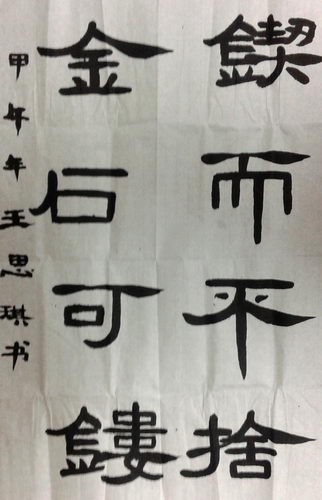 鍥而不捨
金石可鏤
甲午年王思琪书